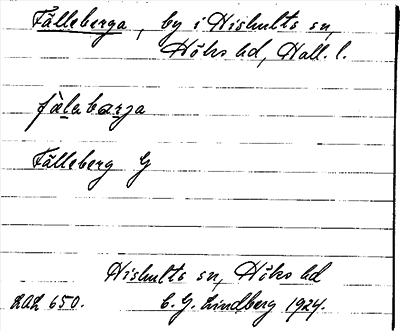 Fälleberga, by i Hishults sn,
Höks hd, Hall. l.
fælabarja
Fälleberg G
Hishults sn, Höks hd
LAL 650. E. G. Lindberg 1924.